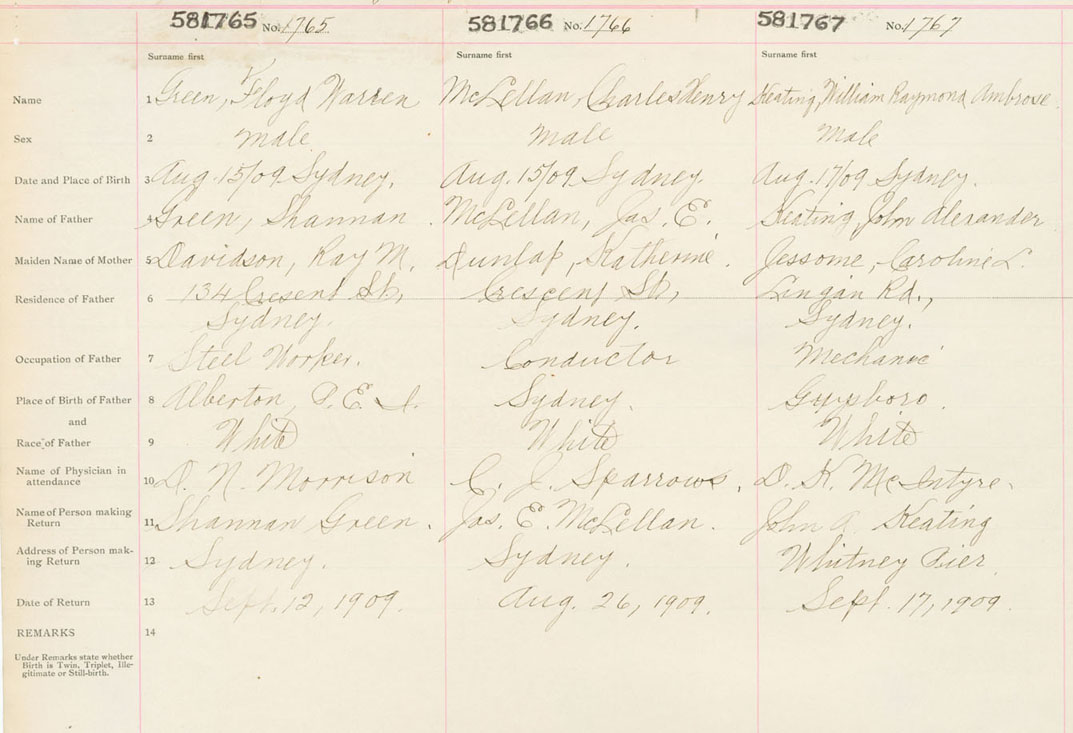 581765 No. 1765 581766 No. 1766 581767 No. 1767
Surname first Surname first Surname first
Name 1 Green, Floyd Warren McLellan, Charles Henry Keating, William Raymond Ambrose
Sex 2 Male. Male Male
Date and Place of Birth 3 Aug. 15/09 Sydney. Aug. 15/09 Sydney. Aug. 17/09 Sydney.
Name of Father 4 Green, Shannan McLellan, Jas. E. Keating, John Alexander
Maiden Name of Mother 5 Davidson, Ray M. Dunlap, Katherine. Jessome, Caroline L.
Residence of Father 6 134 Cresent St, Crescent St, Lingan Rd.,
Sydney. Sydney. Sydney.
Occupation of Father 7 Steel Worker. Conductor Mechanic
Place of Birth of Father 8 Alberton, P.E.I. Sydney. Guysboro.
and
Race of Father 9 White White White
Name of Physician in
attendance 10 D. N. Morrison C. J. Sparrows. D. K. McIntyre.
Name of Person making
Return 11 Shannan Green. Jas. E. McLellan. John A Keating
Address of Person mak-
ing Return 12 Sydney. Sydney. Whitney Pier
Date of Return 13 Sept. 12, 1909. Aug. 26, 1909. Sept. 17, 1909.
REMARKS 14
Under Remarks state whether
Birth is Twin, Triplet, Ille-
gitimate or Still-birth.